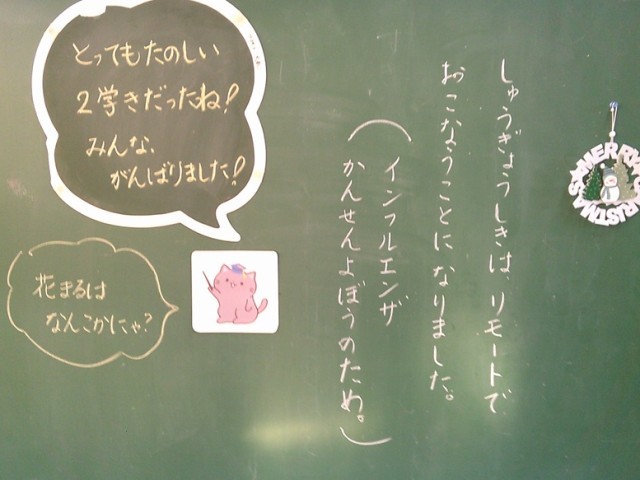 とってもたのしい
2学きだったね!
みんな、
がんばりました!
花まるは
なんこかにゃ?
しゅうぎょうしきは、リモートで
おこなうことになりました。
(インフルエンザ
かんせんよぼうのため。)
MERRY CHRISTMAS